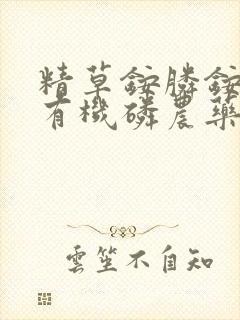 精草銨膦銨
有機磷農藥
雲笙不自知